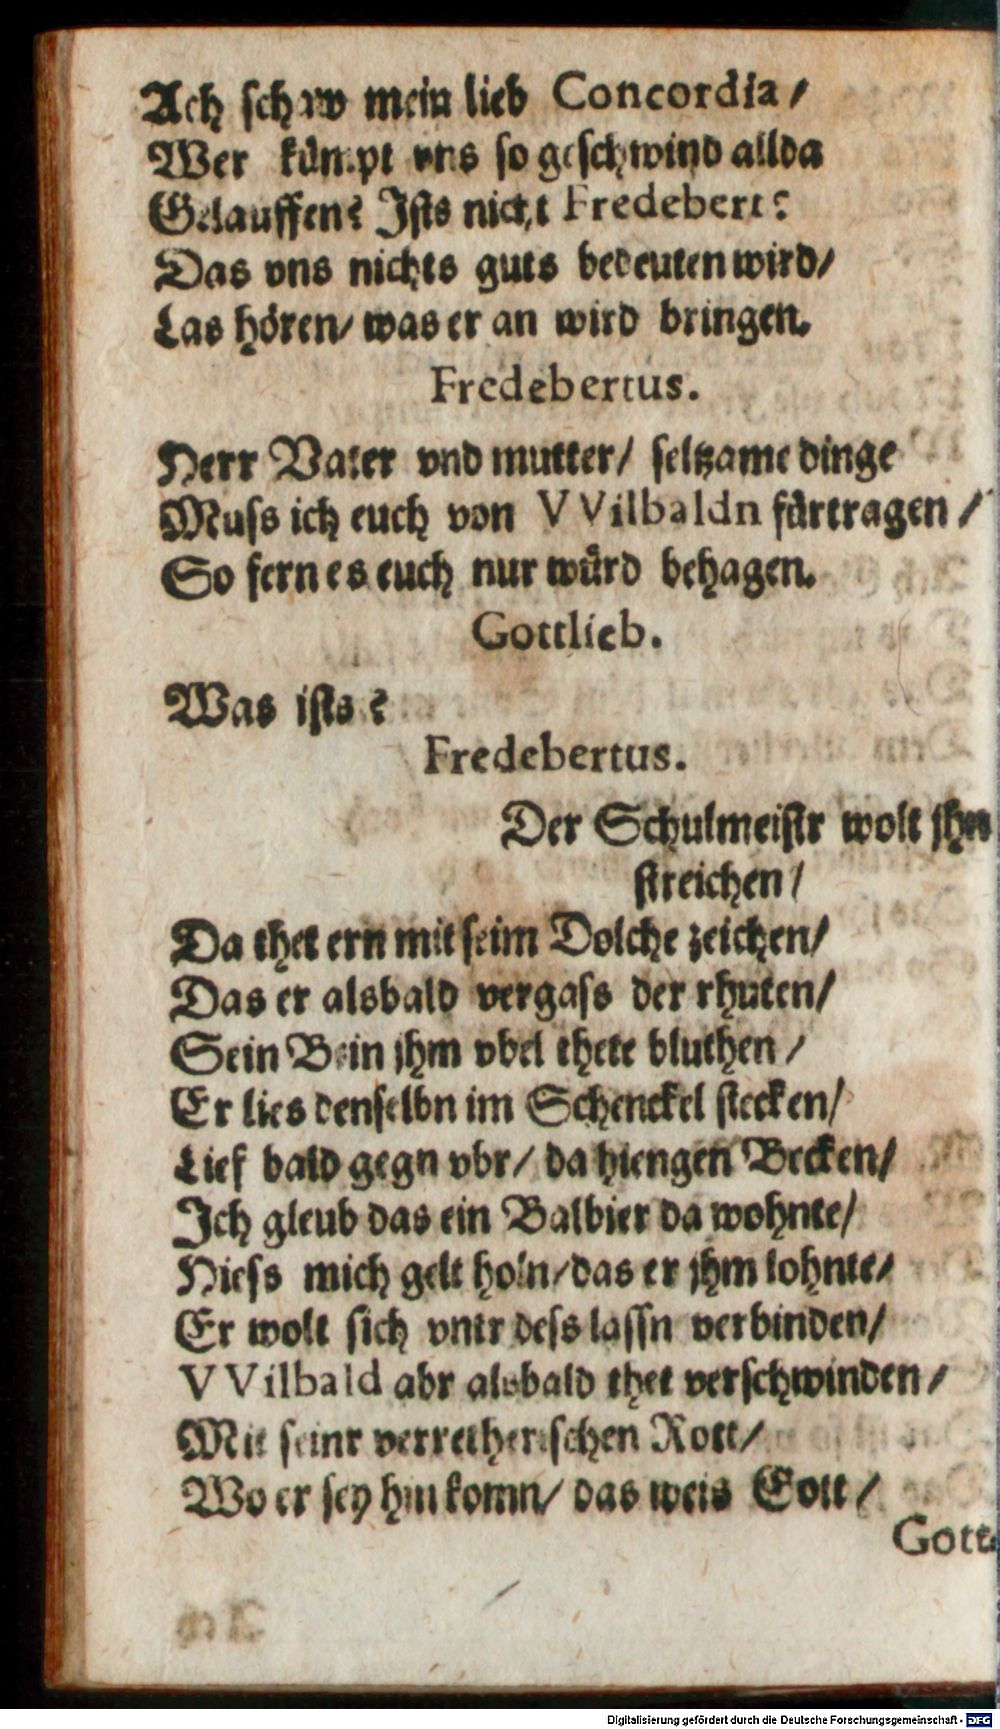 Ach schaw mein lieb Concordia/
Wer kümpt vns so geschwind allda
Gelauffen? Jsts nicht Fredebert?
Das vns nichts guts bedeuten wird/
Las hören/ was er an wird bringen.
Fredebertus.
Herr Vater vnd mutter/ seltzame dinge
Muss ich euch von VVilbaldn fürtragen/
So fern es euch nur würd behagen.
Gottlieb.
Was ists?
Fredebertus.
Der Schulmeistr wolt jhn
streichen/
Da thet ern mit seim Dolche zeichen/
Das er alsbald vergass der rhuten/
Sein Bein jhm vbel thete bluthen/
Er lies denselbn im Schenckel stecken/
Lief bald gegn vbr/ da hiengen Becken/
Jch gleub das ein Balbier da wohnte/
Hiess mich gelt holn/ das er jhm lohnte/
Er wolt sich vntr dess lassn verbinden/
VVilbald abr alsbald thet verschwinden/
Mit seinr verretherischen Rott/
Wo er sey hin komn/ das weis Gott/
Gott-
Digitalisierung gefördert durch die Deutsche Forschungsgemeinschaft - DFG